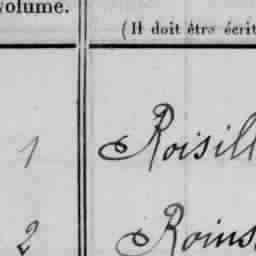 volume.
(Il doit être écrit
1 Roisill
2 Roins